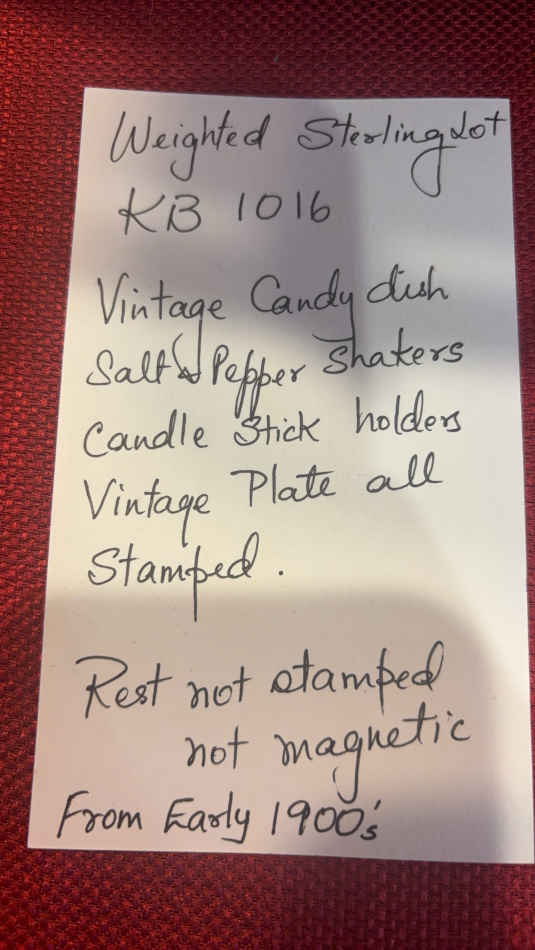 Weighted Sterling Lot
KB 1016
Vintage Candy dish
Salt & Pepper Shakers
Candle Stick holders
Vintage Plate all
Stamped.
Rest not stamped
not magnetic
From Early 1900's